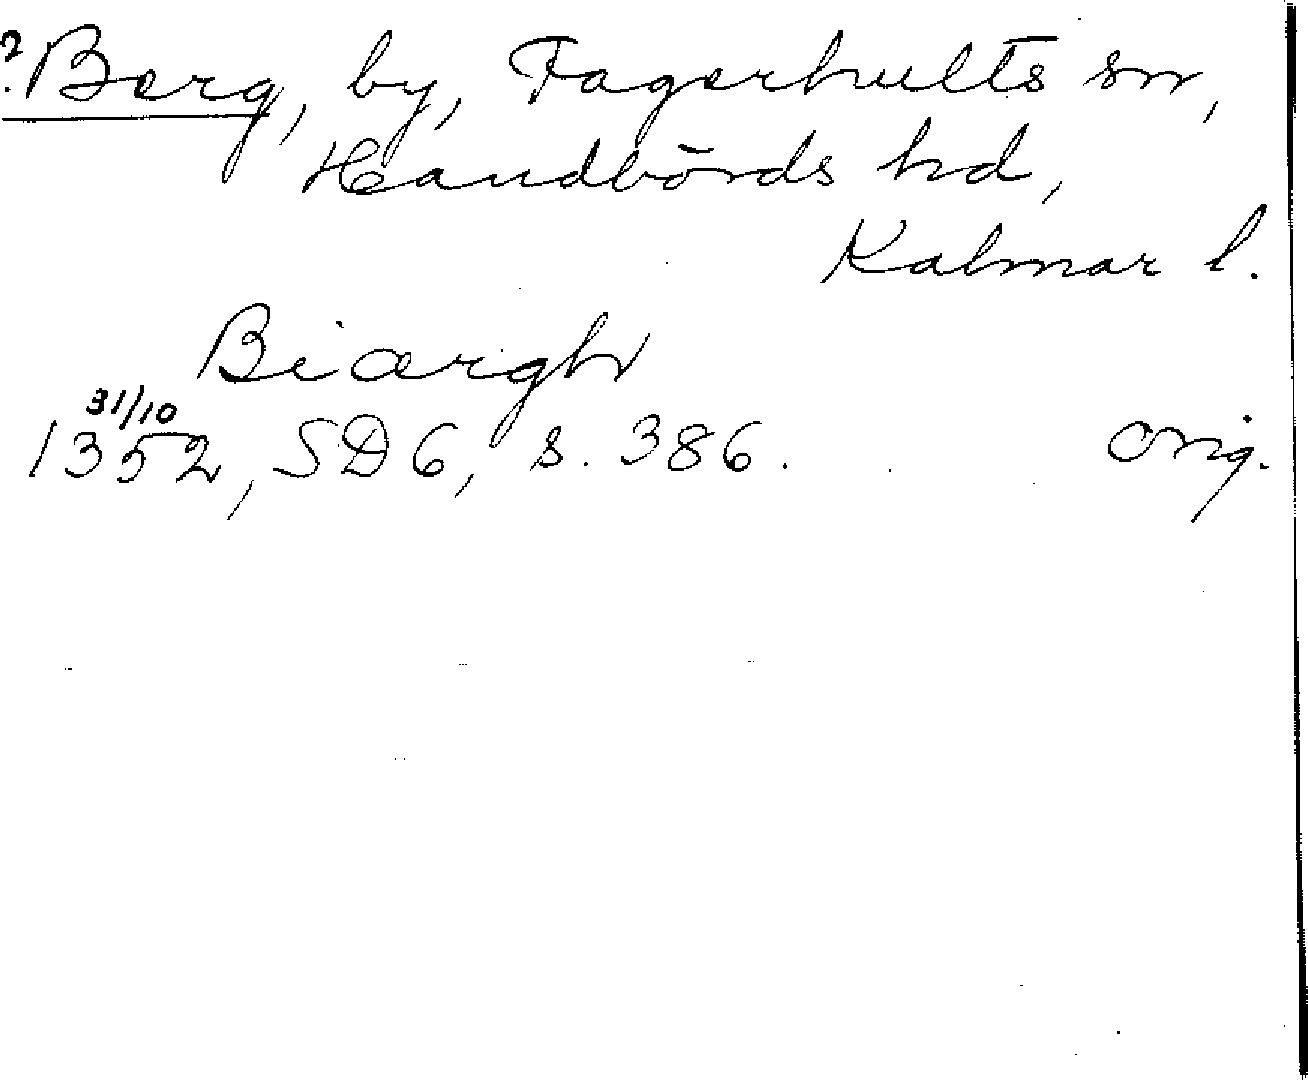 ? Berg, by, Fagerhults sn,
Handbörds hd,
Kalmar l.
Biærgh
31/10
1352, SD 6, s. 386. Orig.